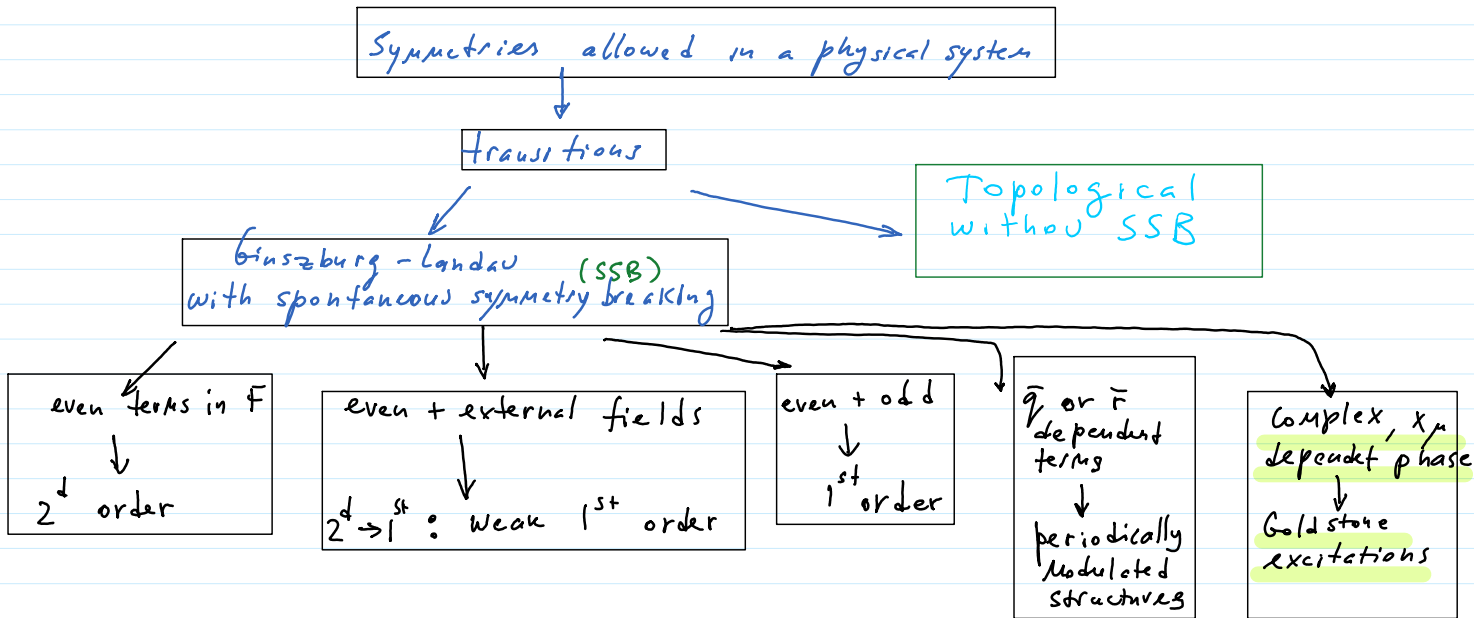 Symmetries allowed in a physical system
transitions
Topological
withou SSB
Ginszburg-Landau
(SSB)
with spontaneous symmetry breaking
even terms in F
2d order
even + external fields
2d → 1st : weak 1st order
even + odd
1st order
q̄ or r̄
dependent
terms
periodically
modulated
structures
complex, xμ
dependet phase
Goldstone
excitations